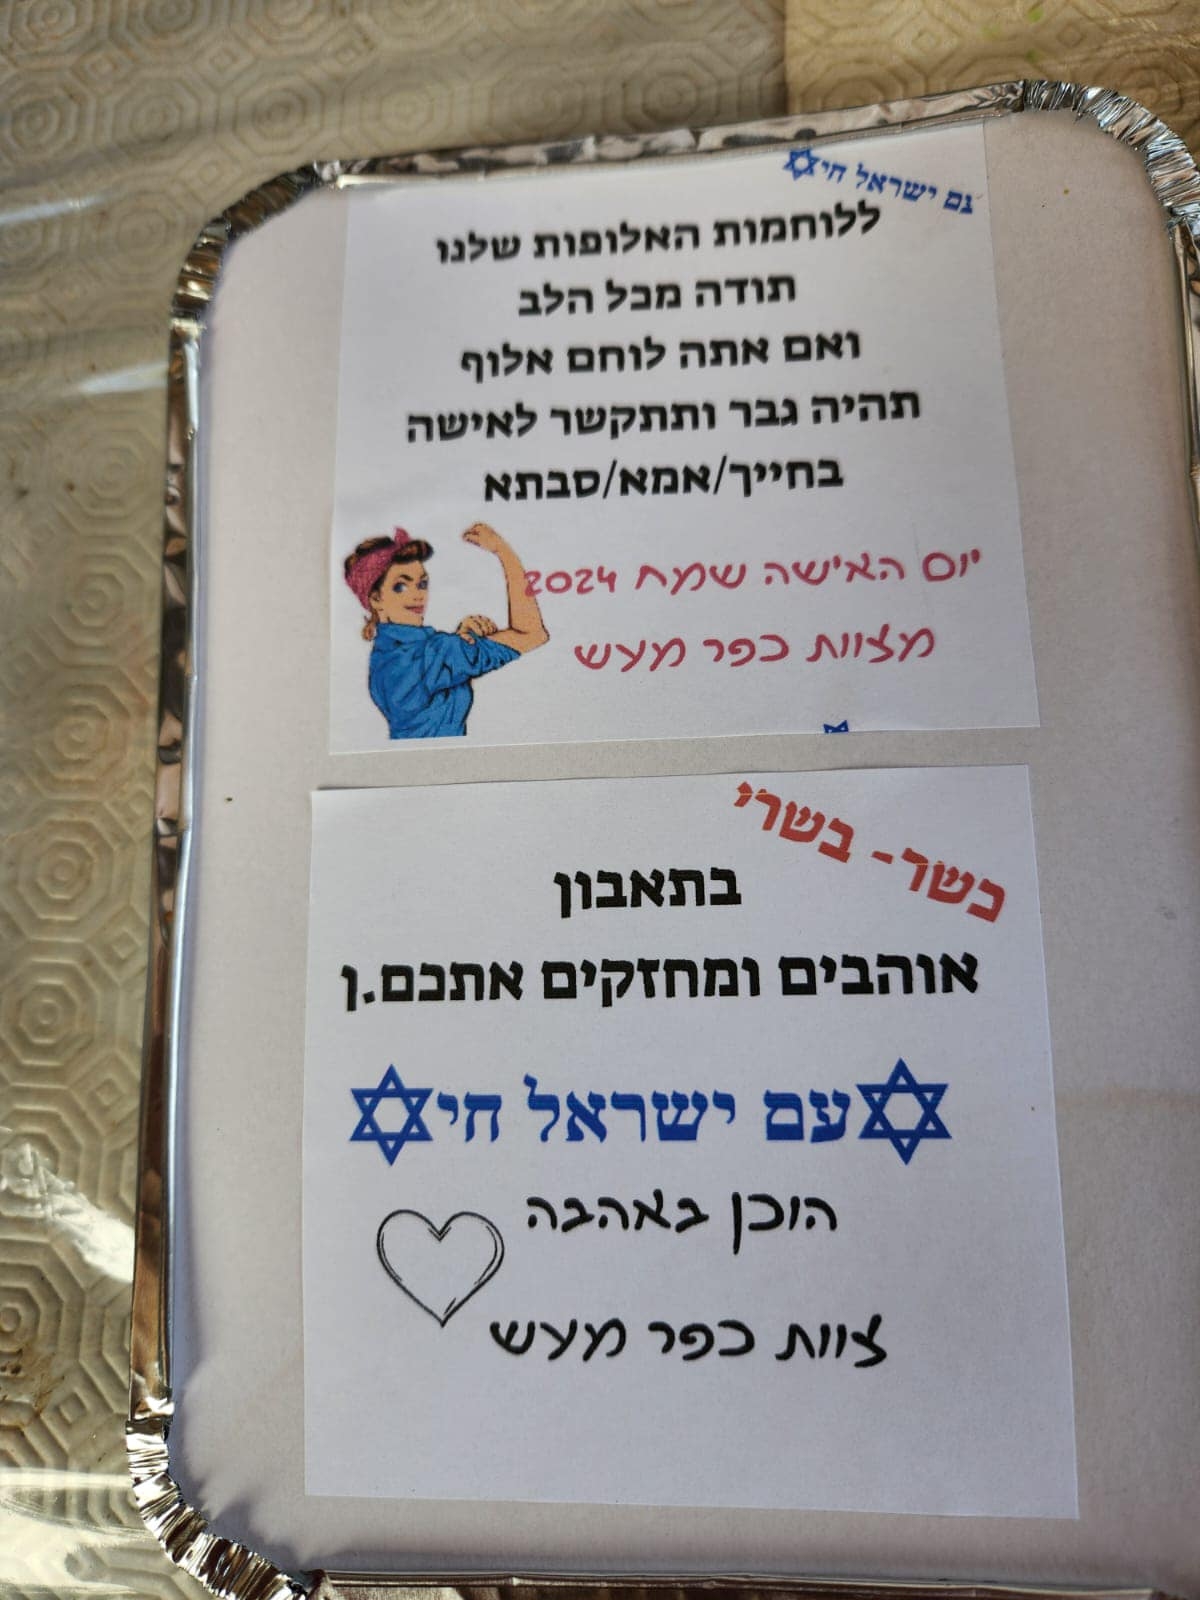 עם ישראל חי
ללוחמות האלופות שלנו
תודה מכל הלב
ואם אתה לוחם אלוף
תהיה גבר ותתקשר לאישה
בחייך/אמא/סבתא
יום האישה שמח 2024
מצוות כפר מעש
כשר- בשרי
בתאבון
אוהבים ומחזקים אתכם.ן
עם ישראל חי
הוכן באהבה
צוות כפר מעש